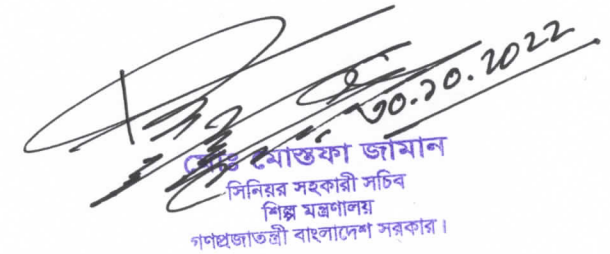 ৩০.১০.২০২২
মোঃ মোস্তফা জামান
সিনিয়র সহকারী সচিব
শিল্প মন্ত্রণালয়
গণপ্রজাতন্ত্রী বাংলাদেশ সরকার।